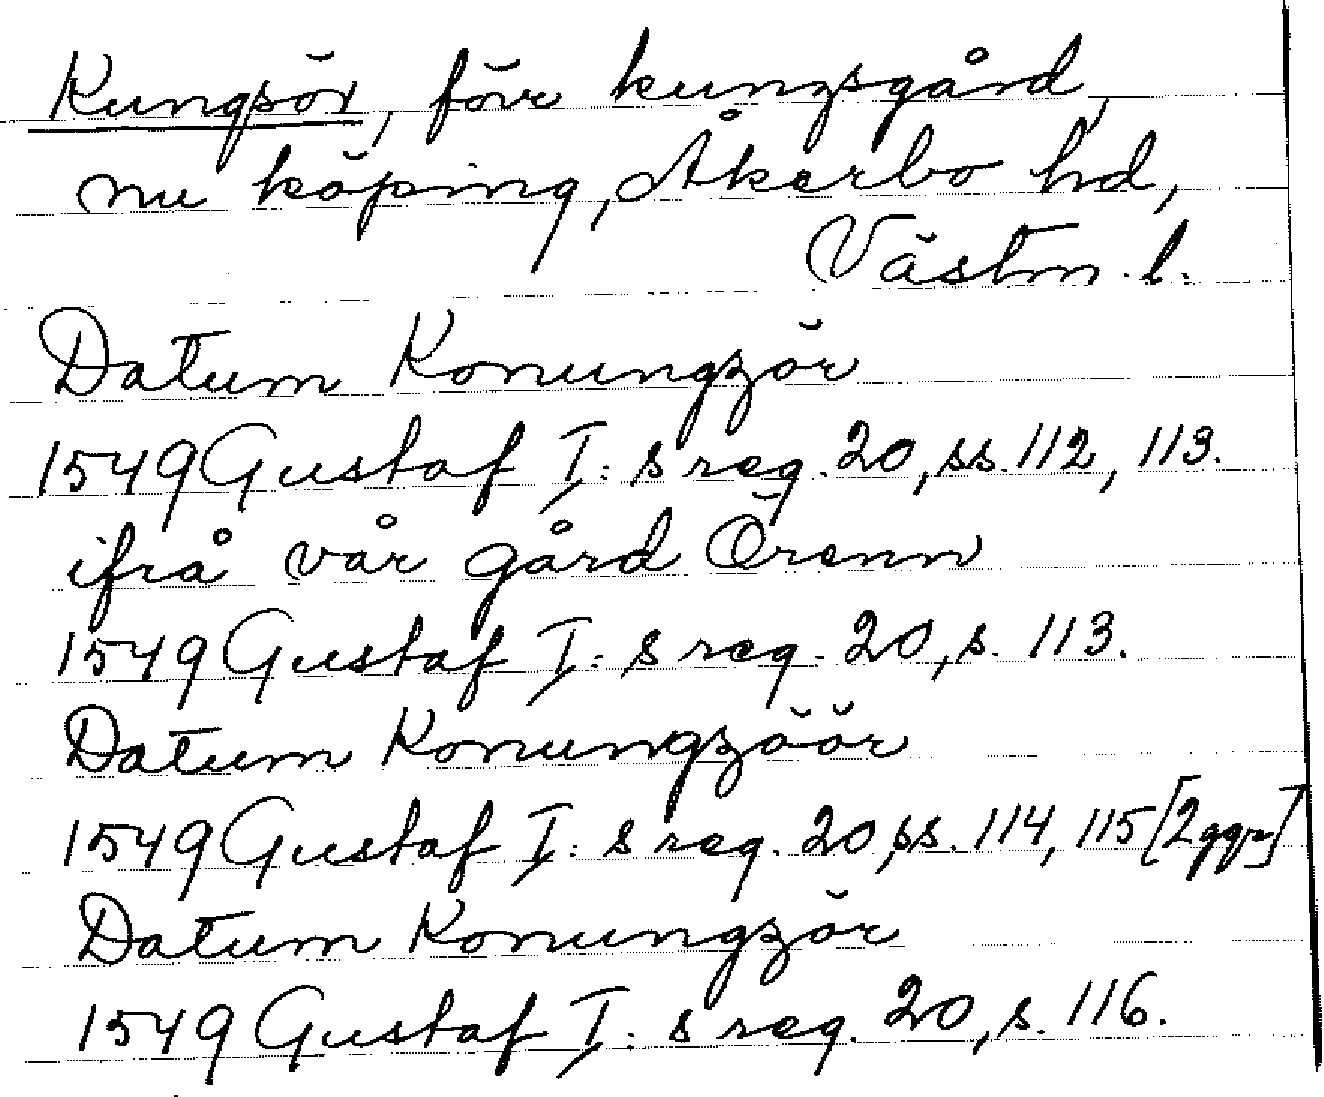 Kungsör, förr kungsgård,
nu köping, Åkerbo hd,
Västm. l.
Datum Konungzör
1549 Gustaf I:s reg. 20, ss. 112, 113.
ifrå vår gård Örenn
1549 Gustaf I:s reg. 20, s. 113.
Datum Konungzöör
1549 Gustaf I:s reg. 20, ss. 114, 115 [2 ggr]
Datum Konungzör
1549 Gustaf I:s reg. 20, s. 116.